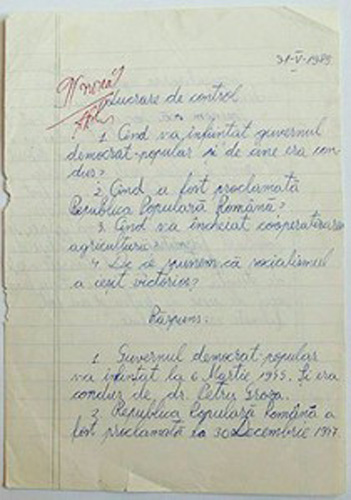 31-V-1989
Lucrare de control
1. Când s-a înfiintat guvernul
democrat-popular și de cine era con
dus?
2. Când a fost proclamată
Republica Populară Română?
3. Când s-a încheiat cooperativizarea
agriculturii
4. De ce spunem că socialismul
a ieșit victorios?
Răspuns:
1. Guvernul democrat-popular
s-a înfiintat la 6 Martie 1945. Și era
condus de dr. Petru Groza.
2. Republica Populară Română a
fost proclamată la 30 Decembrie 1947.